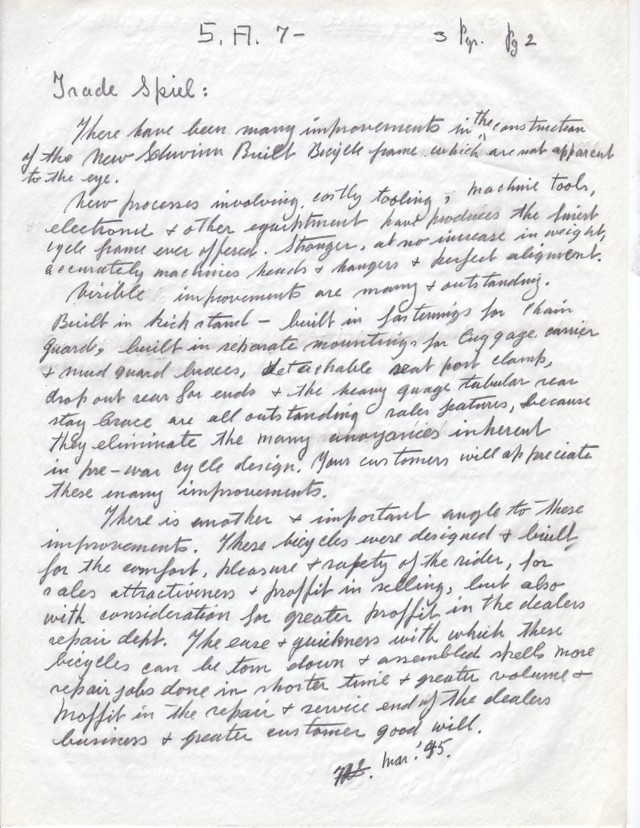 S.A. 7-
3 Pgr. Pg 2
Trade Spiel:
There have been many improvements in the construction
of the New Schwinn Built Bicycle frame which are not apparent
to the eye.
New processes involving costly tooling, machine tools,
electronic & other equiptment have produces the finest
cycle frame ever offered. Stronger, at no increase in weight,
accurately machines heads & hangers & perfect alignment.
Visible improvements are many & outstanding.
Built in kick stand - built in fastenings for chain
guard, built in seperate mountings for luggage carrier
& mud guard braces, detachable seat post clamp,
drop out rear for ends & the heavy guage tubular rear
stay brace are all outstanding sales features, because
they eliminate the many anoyances inherent
in pre-war cycle design. Your customers will appreciate
these many improvements.
There is another & important angle to these
improvements. These bicycles were designed & built
for the comfort, pleasure & safety of the rider, for
sales attractiveness & proffit in selling, but also
with consideration for greater proffit in the dealers
repair dept. The ease & quickness with which these
bicycles can be torn down & assembled spells more
repair jobs done in shorter time & greater volume &
proffit in the repair & service end of the dealers
business & greater customer good will.
Mar. '45.